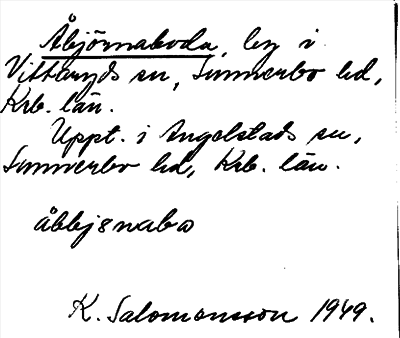 Åbjörnaboda, by i
Vittaryds sn, Sunnerbo hd,
Krb. län.
Uppt. i Angelstads sn,
Sunnerbo hd, Krb. län.
åbbjsnabo
K. Salomonsson 1949.